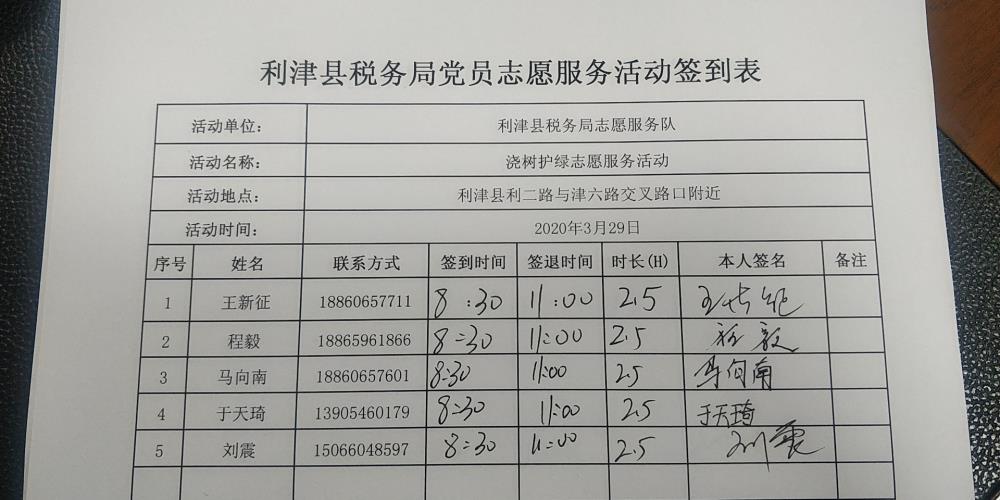 利津县税务局党员志愿服务活动签到表
活动单位: 利津县税务局志愿服务队
活动名称: 浇树护绿志愿服务活动
活动地点: 利津县利二路与津六路交叉路口附近
活动时间: 2020年3月29日
序号 姓名 联系方式 签到时间 签退时间 时长(H) 本人签名 备注
1 王新征 18860657711 8:30 11:00 2.5
2 程毅 18865961866 8:30 11:00 2.5 程毅
3 马向南 18860657601 8:30 11:00 2.5 马向南
4 于天琦 13905460179 8:30 11:00 2.5 于天琦
5 刘震 15066048597 8:30 11:00 2.5 刘震